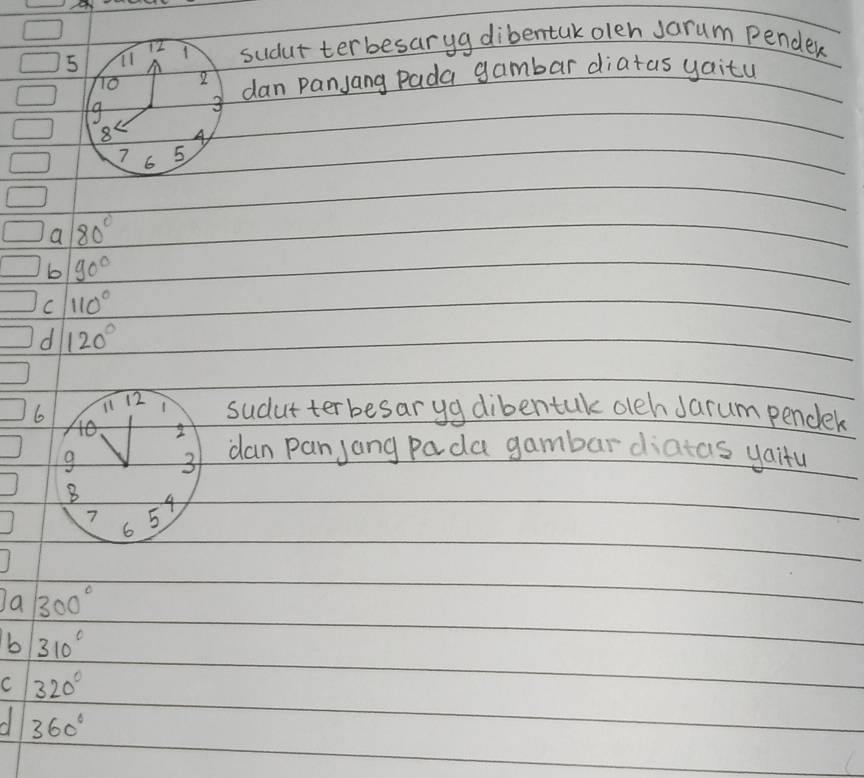 5 sudut terbesar yg dibentuk oleh Jarum Pendek
dan PanJang Pada gambar diatas yaitu
12
11 1
10 2
9 3
8 4
7 6 5
a 80°
b 90°
c 110°
d 120°
6 sudut terbesar yg dibentuk oleh Jarum pendek
dan PanJang Pada gambar diatas yaitu
11 12 1
10 2
9 3
8 4
7 6 5
a 300°
b 310°
c 320°
d 360°